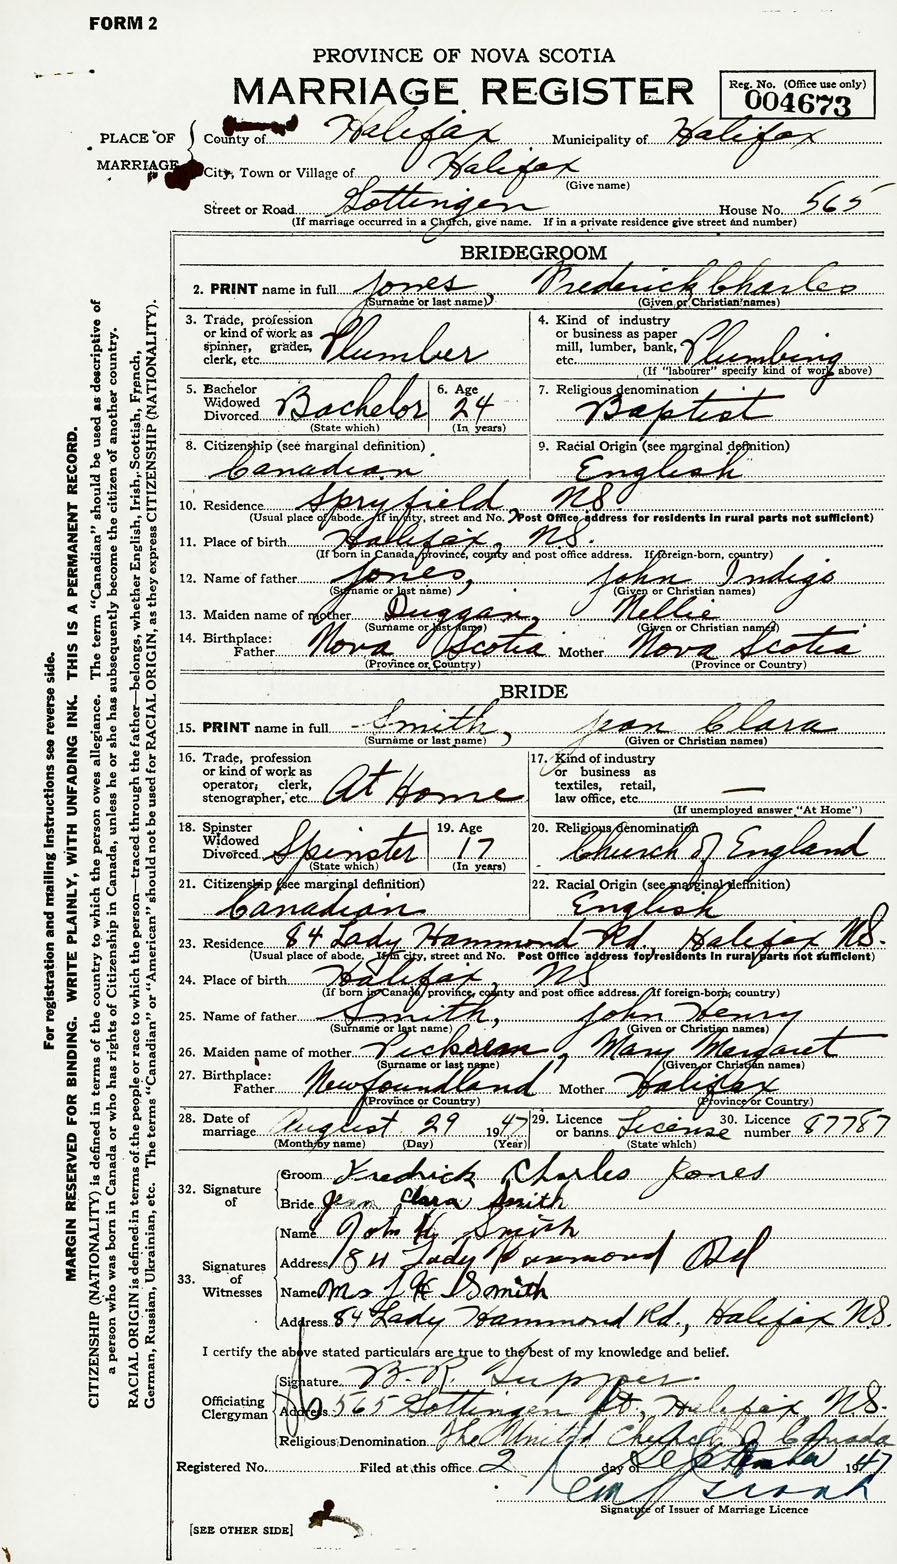 FORM 2
PROVINCE OF NOVA SCOTIA
MARRIAGE REGISTER
Reg. No. (Office use only)
004673
PLACE OF MARRIAGE
County of Halifax Municipality of Halifax
City, Town or Village of Halifax
(Give name)
Street or Road Gottingen House No. 565
(If marriage occurred in a Church, give name. If in a private residence give street and number)
BRIDEGROOM
2. PRINT name in full Jones, Frederick Charles
(Surname or last name) (Given or Christian names)
3. Trade, profession or kind of work as spinner, grader, clerk, etc. Plumber
4. Kind of industry or business as paper mill, lumber, bank, etc. Plumbing
(If "labourer" specify kind of work above)
5. Bachelor Widowed Divorced Bachelor
(State which)
6. Age 24
(In years)
7. Religious denomination
Baptist
8. Citizenship (see marginal definition)
Canadian
9. Racial Origin (see marginal definition)
English
10. Residence Spryfield, NS.
(Usual place of abode. If in city, street and No. Post Office address for residents in rural parts not sufficient)
11. Place of birth Halifax, N.S.
(If born in Canada, province, county and post office address. If foreign-born, country)
12. Name of father Jones, John Indigo
(Surname or last name) (Given or Christian names)
13. Maiden name of mother Duggan, Nellie
(Surname or last name) (Given or Christian names)
14. Birthplace: Father Nova Scotia Mother Nova Scotia
(Province or Country) (Province or Country)
BRIDE
15. PRINT name in full Smith, Jean Clara
(Surname or last name) (Given or Christian names)
16. Trade, profession or kind of work as operator, clerk, stenographer, etc. At Home
17. Kind of industry or business as textiles, retail, law office, etc. —
(If unemployed answer "At Home")
18. Spinster Widowed Divorced Spinster
(State which)
19. Age 17
(In years)
20. Religious denomination
Church of England
21. Citizenship (see marginal definition)
Canadian
22. Racial Origin (see marginal definition)
English
23. Residence 84 Lady Hammond Rd, Halifax NS.
(Usual place of abode. If in city, street and No. Post Office address for residents in rural parts not sufficient)
24. Place of birth Halifax, NS
(If born in Canada, province, county and post office address. If foreign-born, country)
25. Name of father Smith, John Henry
(Surname or last name) (Given or Christian names)
26. Maiden name of mother Mary Margaret
(Surname or last name) (Given or Christian names)
27. Birthplace: Father Newfoundland Mother Halifax
(Province or Country) (Province or Country)
28. Date of marriage August 29 1947
(Month by name) (Day) (Year)
29. Licence or banns License
(State which)
30. Licence number 87787
32. Signature of
Groom Fredrick Charles Jones
Bride Jean Clara Smith
33. Signatures of Witnesses
Name John H. Smith
Address 84 Lady Hammond Rd
Name Mrs J H Smith
Address 84 Lady Hammond Rd., Halifax NS.
I certify the above stated particulars are true to the best of my knowledge and belief.
Officiating Clergyman
Signature B. R. Tupper.
Address 565 Gottingen St., Halifax NS.
Religious Denomination The United Church of Canada
Registered No. Filed at this office 2 day of September 1947
Signature of Issuer of Marriage Licence
[SEE OTHER SIDE]
For registration and mailing instructions see reverse side.
MARGIN RESERVED FOR BINDING. WRITE PLAINLY, WITH UNFADING INK. THIS IS A PERMANENT RECORD.
CITIZENSHIP (NATIONALITY) is defined in terms of the country to which the person owes allegiance. The term "Canadian" should be used as descriptive of
a person who was born in Canada or who has rights of Citizenship in Canada, unless he or she has subsequently become the citizen of another country.
RACIAL ORIGIN is defined in terms of the people or race to which the person—traced through the father—belongs, whether English, Irish, Scottish, French,
German, Russian, Ukrainian, etc. The terms "Canadian" or "American" should not be used for RACIAL ORIGIN, as they express CITIZENSHIP (NATIONALITY).